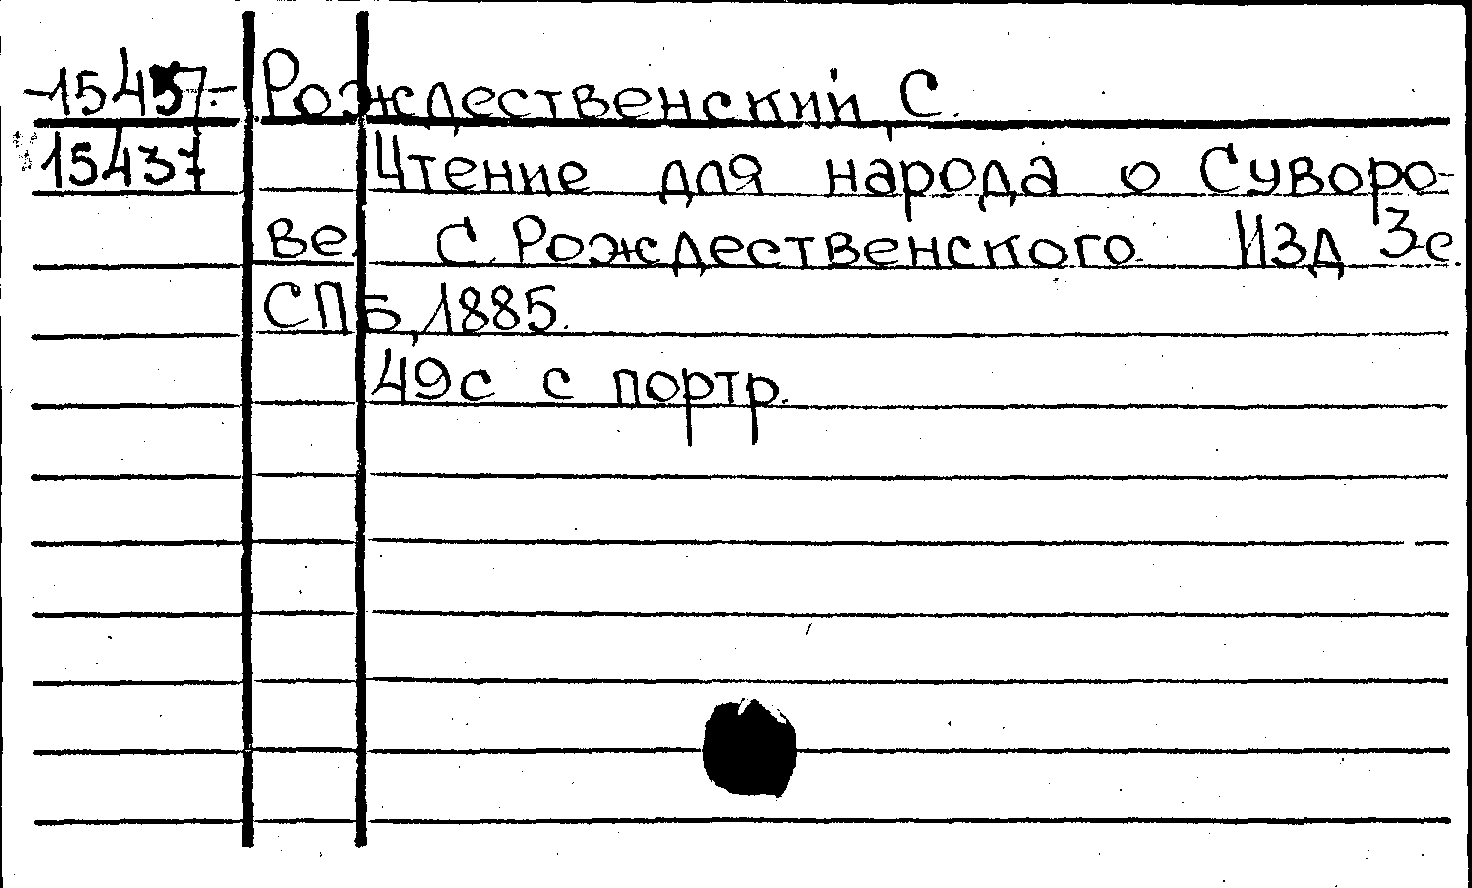 15457. Рождественский, С.
15437 Чтение для народа о Суворо-
ве. С. Рождественского. Изд 3-е.
СПБ, 1885.
49с с портр.